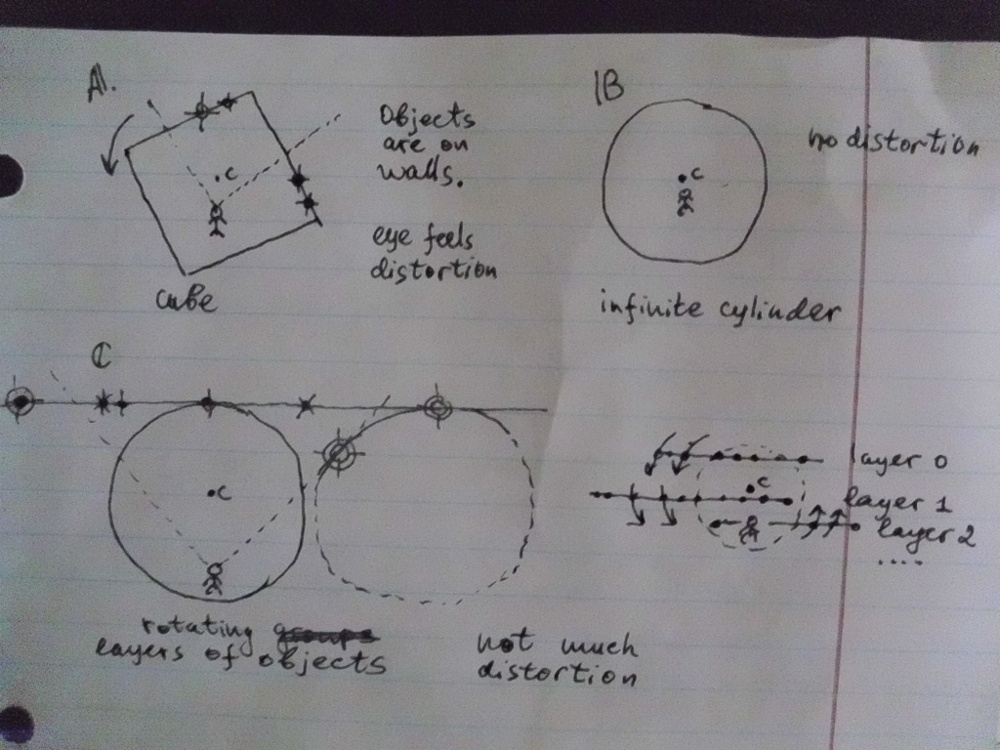 A.
Objects
are on
walls.
eye feels
distortion
c
cube
B
no distortion
c
infinite cylinder
C
c
rotating
layers of objects
not much
distortion
layer 0
c
layer 1
layer 2
....